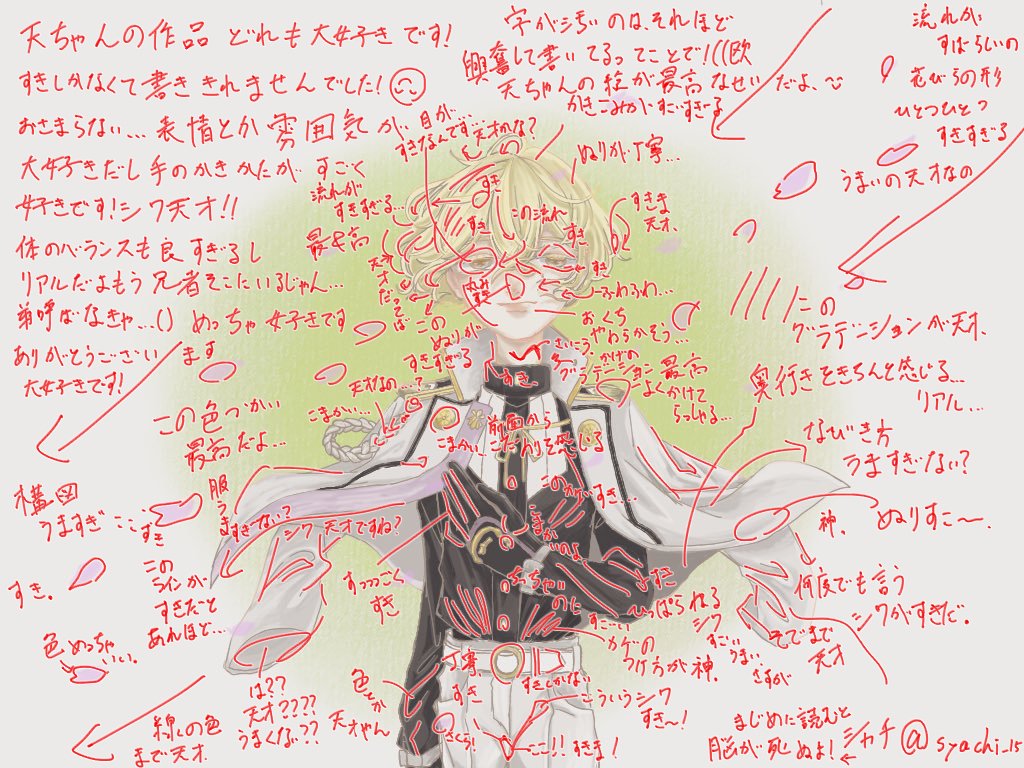 天ちゃんの作品 どれも大好きです!
すきしかなくて書ききれませんでした!
おさまらない… 表情とか雰囲気が
大好きだし手のかきかたが すごく
好きです!シワ天才!!
体のバランスも良すぎるし
リアルだよもう兄者そこにいるじゃん…
弟呼ばなきゃ…() めっちゃ好きです
ありがとうござい ます
大好きです!
字が汚いのは、それほど
興奮して書いてるってことで!((欧
天ちゃんの絵が最高なせいだよ、
かきこみがすごすぎる
流れが
すばらしいの
花びらの形
ひとつひとつ
すきすぎる
うまいの天才なの
目が…
すきなんです…天才かな?
ぬりが丁寧…
流れが
すきすぎる…
最&高
すき
この流れ
すき
すき
すきま
天才、
天才
だってば
丸み
すき
すき
ふわふわ…
この
ぬりが
すきすぎる
おくち
やわらかそう…
さいこう
かげの
グラデーション最高
よくかけて
らっしゃる…
すき、
天才なの…?
こまかい…
前面から
こまかいこだわりを感じる
この
グラデーションが天才、
奥行きをきちんと感じる…
リアル…
なびき方
うますぎない?
神.
ぬりすこ〜.
この色づかい
最高だよ…
構図
うますぎ
すき
服
うますぎない?
シワ 天才ですね?
この
ラインが
すきだと
あんほど…
すき。
色めっちゃ
いい。
すっっごく
すき
このかげ
すき…
こまかいのよ、
めっちゃ
すき
ひっぱられる
シワ
すごい
うまい
さすが
何度でも言う
シワがすきだ。
そでまで
天才
すごーい
カゲの
つけ方が神.
は??
天才????
うまくない??
丁寧
すき
色とか
天才やん
すきしかない
こういうシワ
すき〜!
さくら!
ここ!!すきま!
線の色
まで天才.
まじめに読むと
脳が死ぬよ!
シャチ@syachi_15